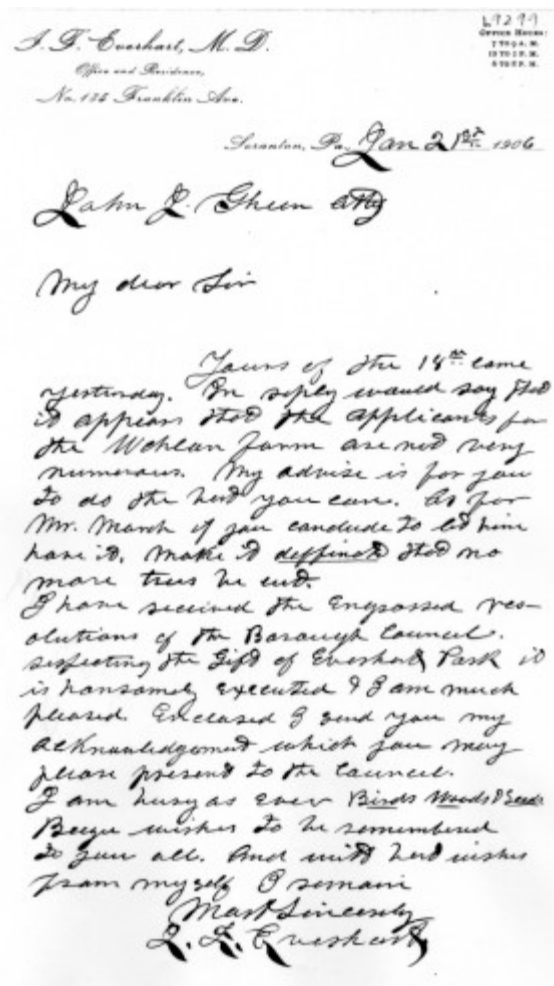 L9299
I. F. Everhart, M. D.
OFFICE HOURS:
7 TO 9 A. M.
Office and Residence,
No. 135 Franklin Ave.
Scranton, Pa. Jan 21st 1906
John J. Gheen atty
My dear Sir
Yours of the 18th came
yesterday. In reply would say that
it appears that the applicants for
the farm are not very
numerous. My advise is for you
to do the best you can. As for
Mr. March if you conclude to let him
have it, make it deffinate that no
more trees be cut.
I have received the Engrossed res-
olutions of the Borough Council.
respecting the Gift of Everhart Park it
is hansomely executed & I am much
pleased. Enclosed I send you my
acknowledgement which you may
please present to the Council.
I am busy as ever Birds Woods &
wishes to be remembered
to you all. And with best wishes
from myself I remain
Most Sincerely
I. F. Everhart